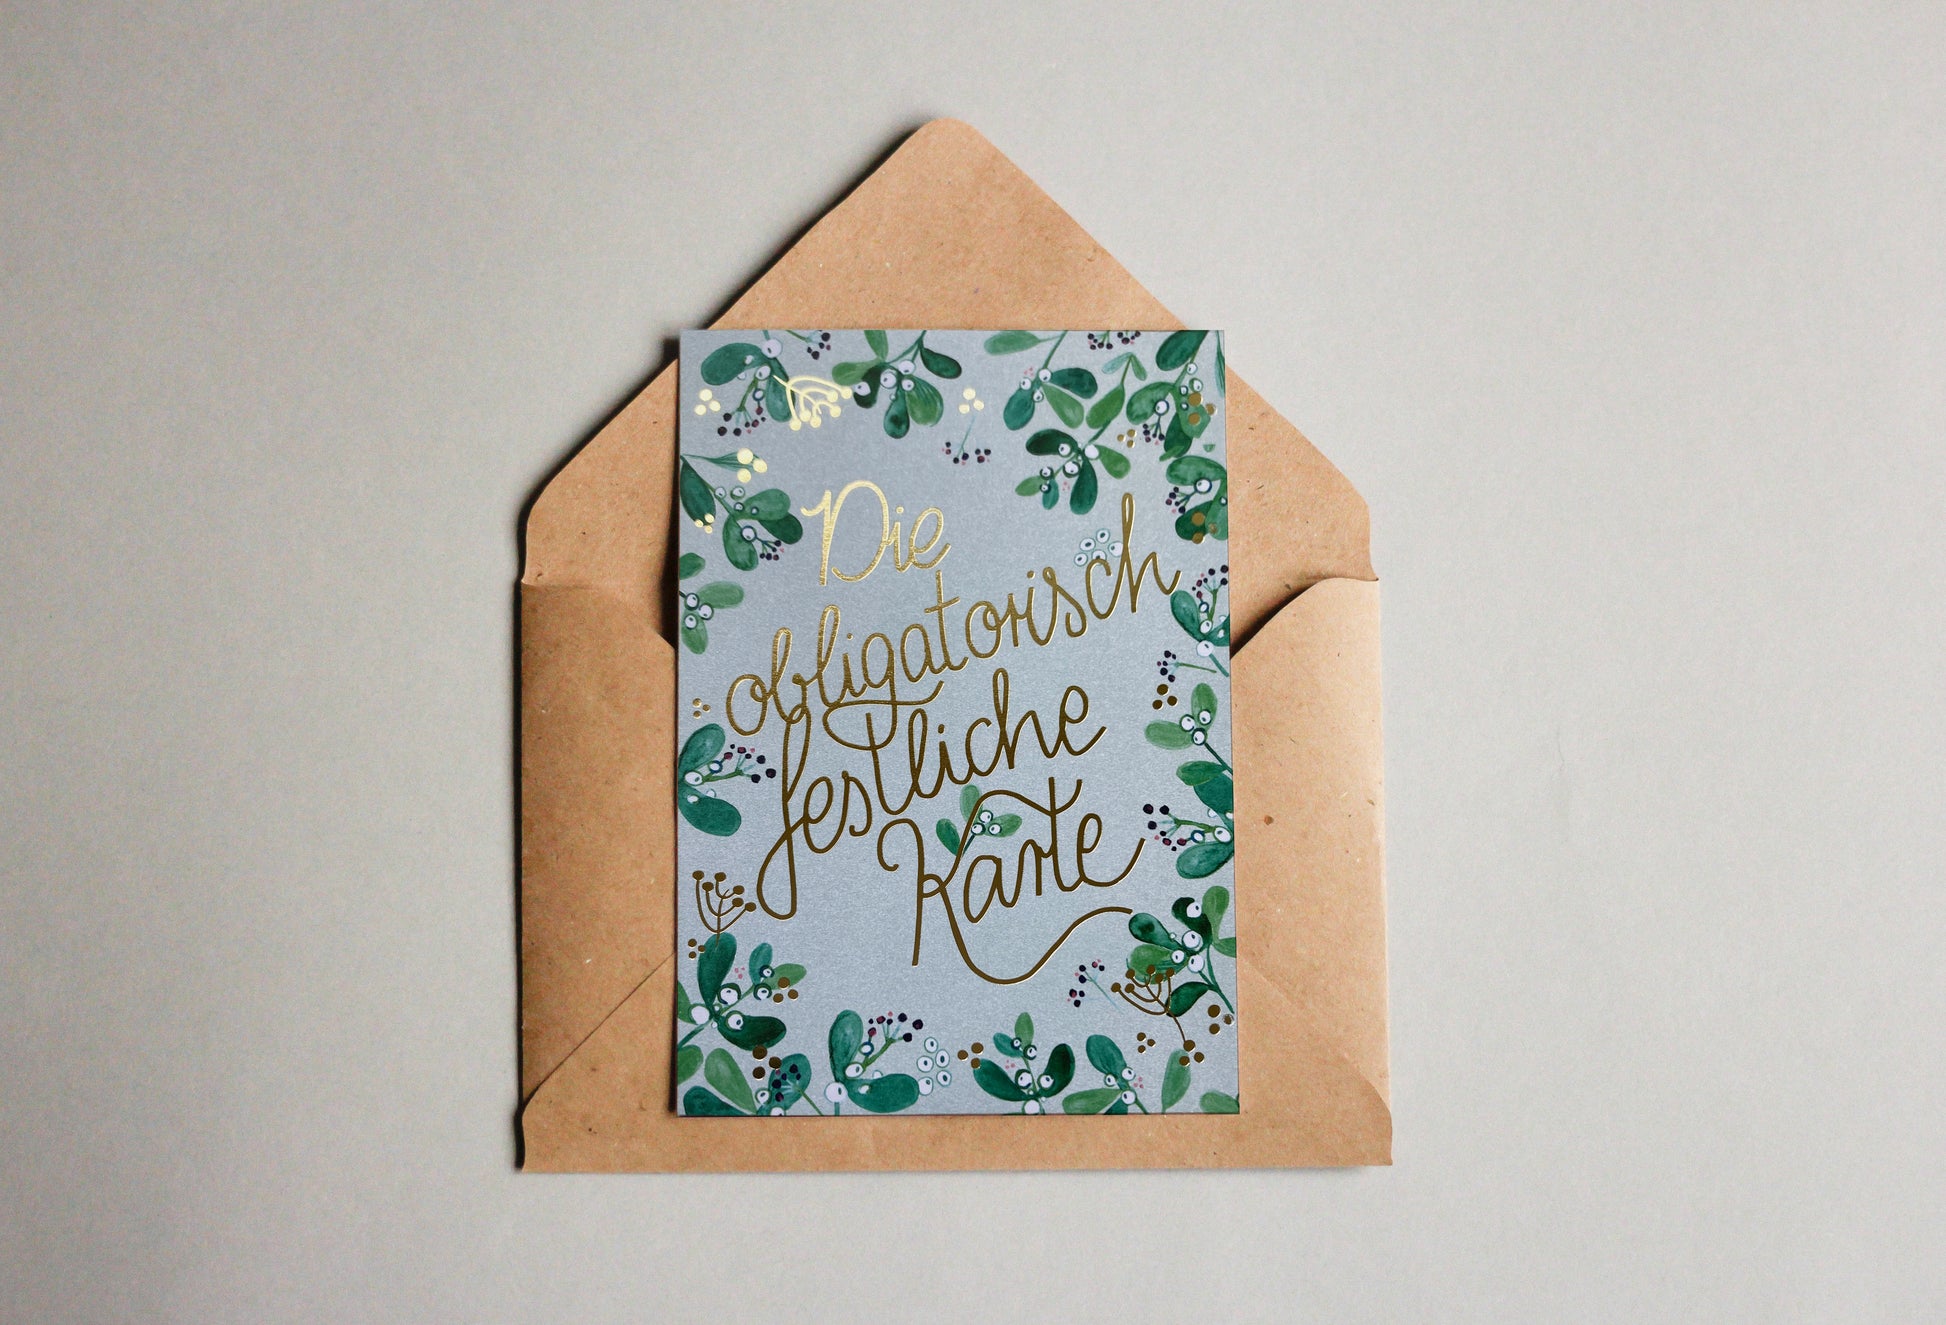 Die
obligatorisch
festliche
Karte